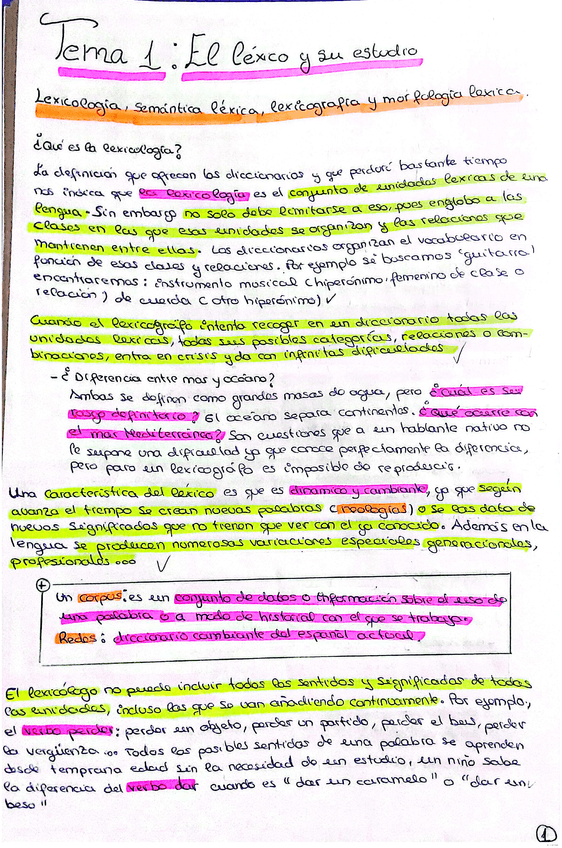 Tema 1: El léxco y su estudio
Lexicología, semántica léxica, lexicografía y morfología lexica.
¿Qué es la lexicología?
La definición que ofrecen los diccionarios y que perduró bastante tiempo
nos indica que la lexicología es el conjunto de unidades lexicas de una
lengua. Sin embargo no solo debe limitarse a eso, pues engloba a las
clases en las que esas unidades se organizan y las relaciones que
mantienen entre ellas. Los diccionarios organizan el vocabulario en
función de esas clases y relaciones. Por ejemplo si buscamos 'guitarra'
encontraremos: instrumento musical (hiperónimo, femenino de clase o
relación) de cuerda (otro hiperónimo) ✓
Cuando el lexicógrafo intenta recoger en un diccionario todas las
unidades lexicas, todas sus posibles categorías, relaciones o com-
binaciones, entra en crisis y da con infinitas dificultades ✓
- ¿Diferencia entre mar y océano?
Ambas se definen como grandes masas de agua, pero ¿cuál es su
rasgo definitorio? El océano separa continentes. ¿Qué ocurre con
el mar Mediterráneo? Son cuestiones que a un hablante nativo no
le supone una dificultad ya que conoce perfectamente la diferencia,
pero para un lexicógrafo es imposible de reproducir.
Una característica del léxico es que es dinámico y cambiante, ya que según
avanza el tiempo se crean nuevas palabras (neologías) o se las data de
nuevos significados que no tienen que ver con el ya conocido. Además en la
lengua se producen numerosas variaciones espaciales generacionales,
profesionales... ✓
+
Un corpus: es un conjunto de datos o información sobre el uso de
una palabra o a modo de historial con el que se trabaja.
Redes: diccionario cambiante del español actual.
El lexicólogo no puede incluir todos los sentidos y significados de todas
las unidades, incluso las que se van añadiendo continuamente. Por ejemplo,
el verbo perder: perder un objeto, perder un partido, perder el bus, perder
la vergüenza... Todos los posibles sentidos de una palabra se aprenden
desde temprana edad sin la necesidad de un estudio, un niño sabe
la diferencia del verbo dar cuando es "dar un caramelo" o "dar un
beso"
1